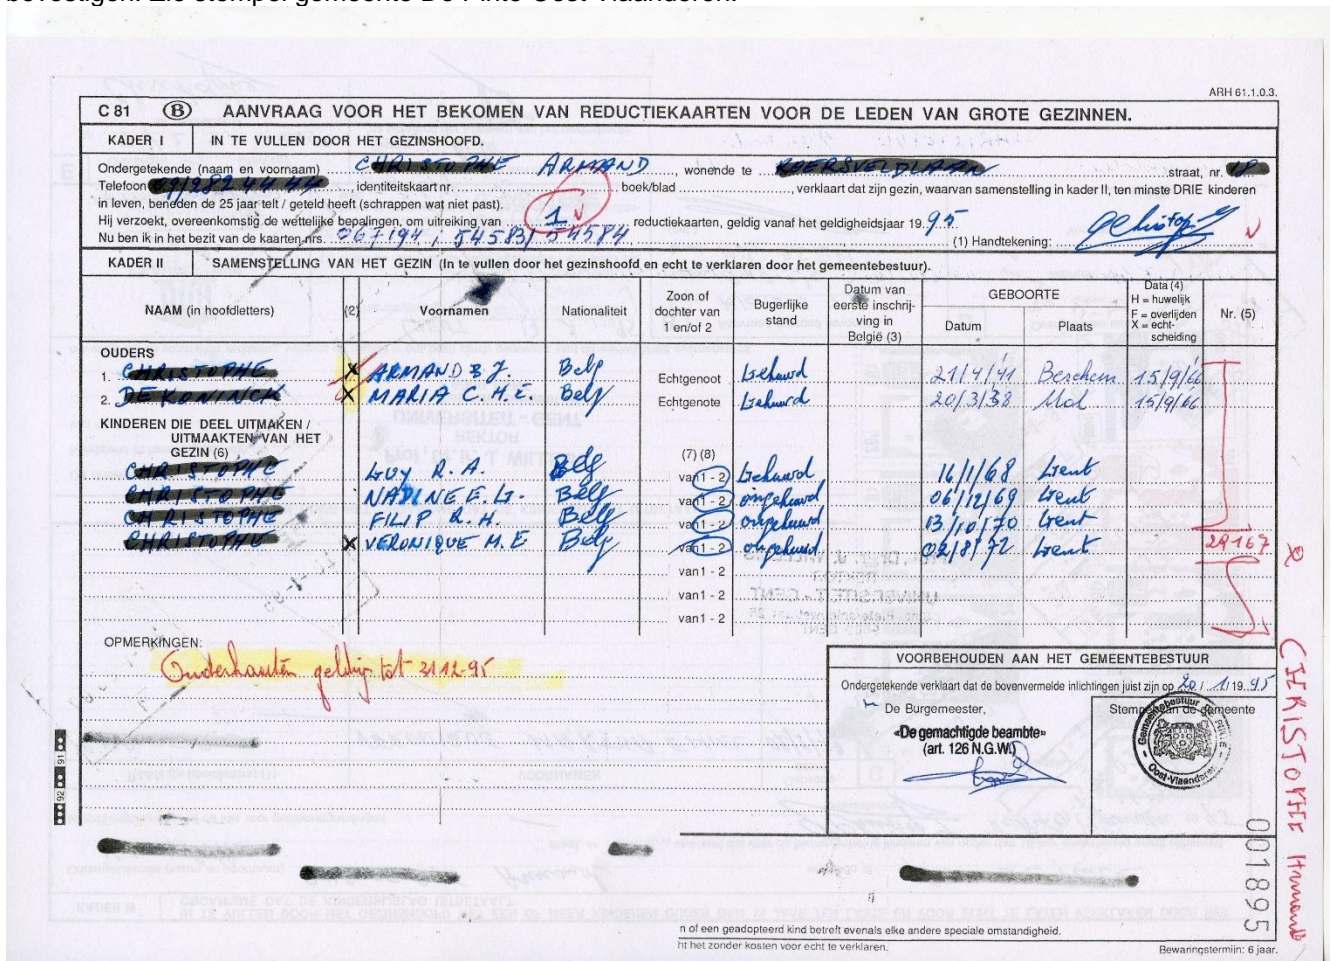 bevestigen. Zie stempel gemeente De Pinte Oost-Vlaanderen.
ARH 61.1.0.3.
C 81 B AANVRAAG VOOR HET BEKOMEN VAN REDUCTIEKAARTEN VOOR DE LEDEN VAN GROTE GEZINNEN.
KADER I IN TE VULLEN DOOR HET GEZINSHOOFD.
Ondergetekende (naam en voornaam) ARMAND, wonende te straat, nr.
Telefoon , identiteitskaart nr. boek/blad , verklaart dat zijn gezin, waarvan samenstelling in kader II, ten minste DRIE kinderen
in leven, beneden de 25 jaar telt / geteld heeft (schrappen wat niet past).
Hij verzoekt, overeenkomstig de wettelijke bepalingen, om uitreiking van 1 reductiekaarten, geldig vanaf het geldigheidsjaar 19 95
Nu ben ik in het bezit van de kaarten nrs. 067194 ; 54583/ 54584
(1) Handtekening:
KADER II SAMENSTELLING VAN HET GEZIN (In te vullen door het gezinshoofd en echt te verklaren door het gemeentebestuur).
NAAM (in hoofdletters) (2) Voornamen Nationaliteit Zoon of dochter van 1 en/of 2 Bugerlijke stand Datum van eerste inschrijving in België (3) GEBOORTE Datum Plaats Data (4) H = huwelijk F = overlijden X = echtscheiding Nr. (5)
OUDERS
1. X ARMAND B J. Belg Echtgenoot Gehuwd 21/4/41 Berchem 15/9/66
2. X MARIA C. H. E. Belg Echtgenote Gehuwd 20/3/38 Mol 15/9/66
KINDEREN DIE DEEL UITMAKEN /
UITMAAKTEN VAN HET
GEZIN (6) (7) (8)
GUY R. A. Belg van 1 - 2 Gehuwd 16/1/68 Gent
NADINE E. G. Belg van 1 - 2 ongehuwd 06/12/69 Gent
FILIP R. H. Belg van 1 - 2 ongehuwd 13/10/70 Gent
X VERONIQUE M. E Belg van 1 - 2 ongehuwd 02/8/72 Gent 29167
van 1 - 2
van 1 - 2
van 1 - 2
OPMERKINGEN:
Ouderkaarten geldig tot 31-12-95
VOORBEHOUDEN AAN HET GEMEENTEBESTUUR
Ondergetekende verklaart dat de bovenvermelde inlichtingen juist zijn op 20 / 1 / 19 95
De Burgemeester,
Stempel van de gemeente
«De gemachtigde beambte»
(art. 126 N.G.W.)
Gemeentebestuur De PINTE
Oost-Vlaanderen
91 92
R CHRISTOPHE Armand
001895
n of een geadopteerd kind betreft evenals elke andere speciale omstandigheid.
ht het zonder kosten voor echt te verklaren.
Bewaringstermijn: 6 jaar.